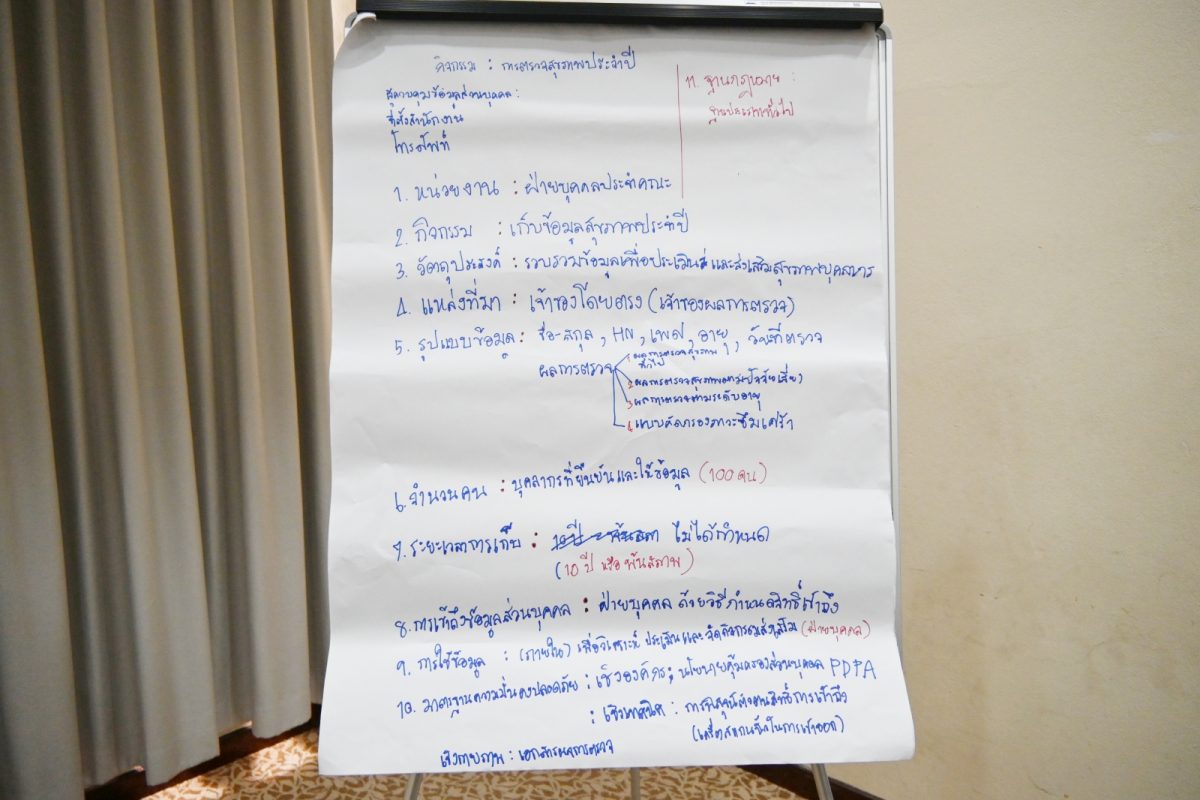 กิจกรรม : การตรวจสุขภาพประจำปี
ผู้ควบคุมข้อมูลส่วนบุคคล :
ที่ตั้งสำนักงาน
โทรศัพท์
11. ฐานกฎหมาย :
1. หน่วยงาน : ฝ่ายบุคคลประจำคณะ
2. กิจกรรม : เก็บข้อมูลสุขภาพประจำปี
3. วัตถุประสงค์ : รวบรวมข้อมูลเพื่อประเมิน และส่งเสริมสุขภาพบุคลากร
4. แหล่งที่มา : เจ้าของโดยตรง (เจ้าของผลการตรวจ)
5. รูปแบบข้อมูล : ชื่อ-สกุล, HN, เพศ, อายุ, วันที่ตรวจ
ผลการตรวจ
1 ผลการตรวจสุขภาพทั่วไป
2 ผลการตรวจสุขภาพตามปัจจัยเสี่ยง
3 ผลการตรวจตามระดับอายุ
4 แบบคัดกรองภาวะซึมเศร้า
6. จำนวนคน : บุคลากรที่ยืนยันและให้ข้อมูล (100 คน)
7. ระยะเวลาการเก็บ : ไม่ได้กำหนด
(10 ปี หรือ พ้นสภาพ)
8. การเข้าถึงข้อมูลส่วนบุคคล : ฝ่ายบุคคล ด้วยวิธีกำหนดสิทธิ์เข้าถึง
9. การใช้ข้อมูล : (ภายใน) เพื่อวิเคราะห์ ประเมินและ จัดกิจกรรมส่งเสริม (ฝ่ายบุคคล)
10. มาตรฐานความมั่นคงปลอดภัย : เชิงองค์กร : นโยบายคุ้มครองส่วนบุคคล PDPA
: เชิงเทคนิค : การเข้าถึง
เชิงกายภาพ : เอกสารผลการตรวจ